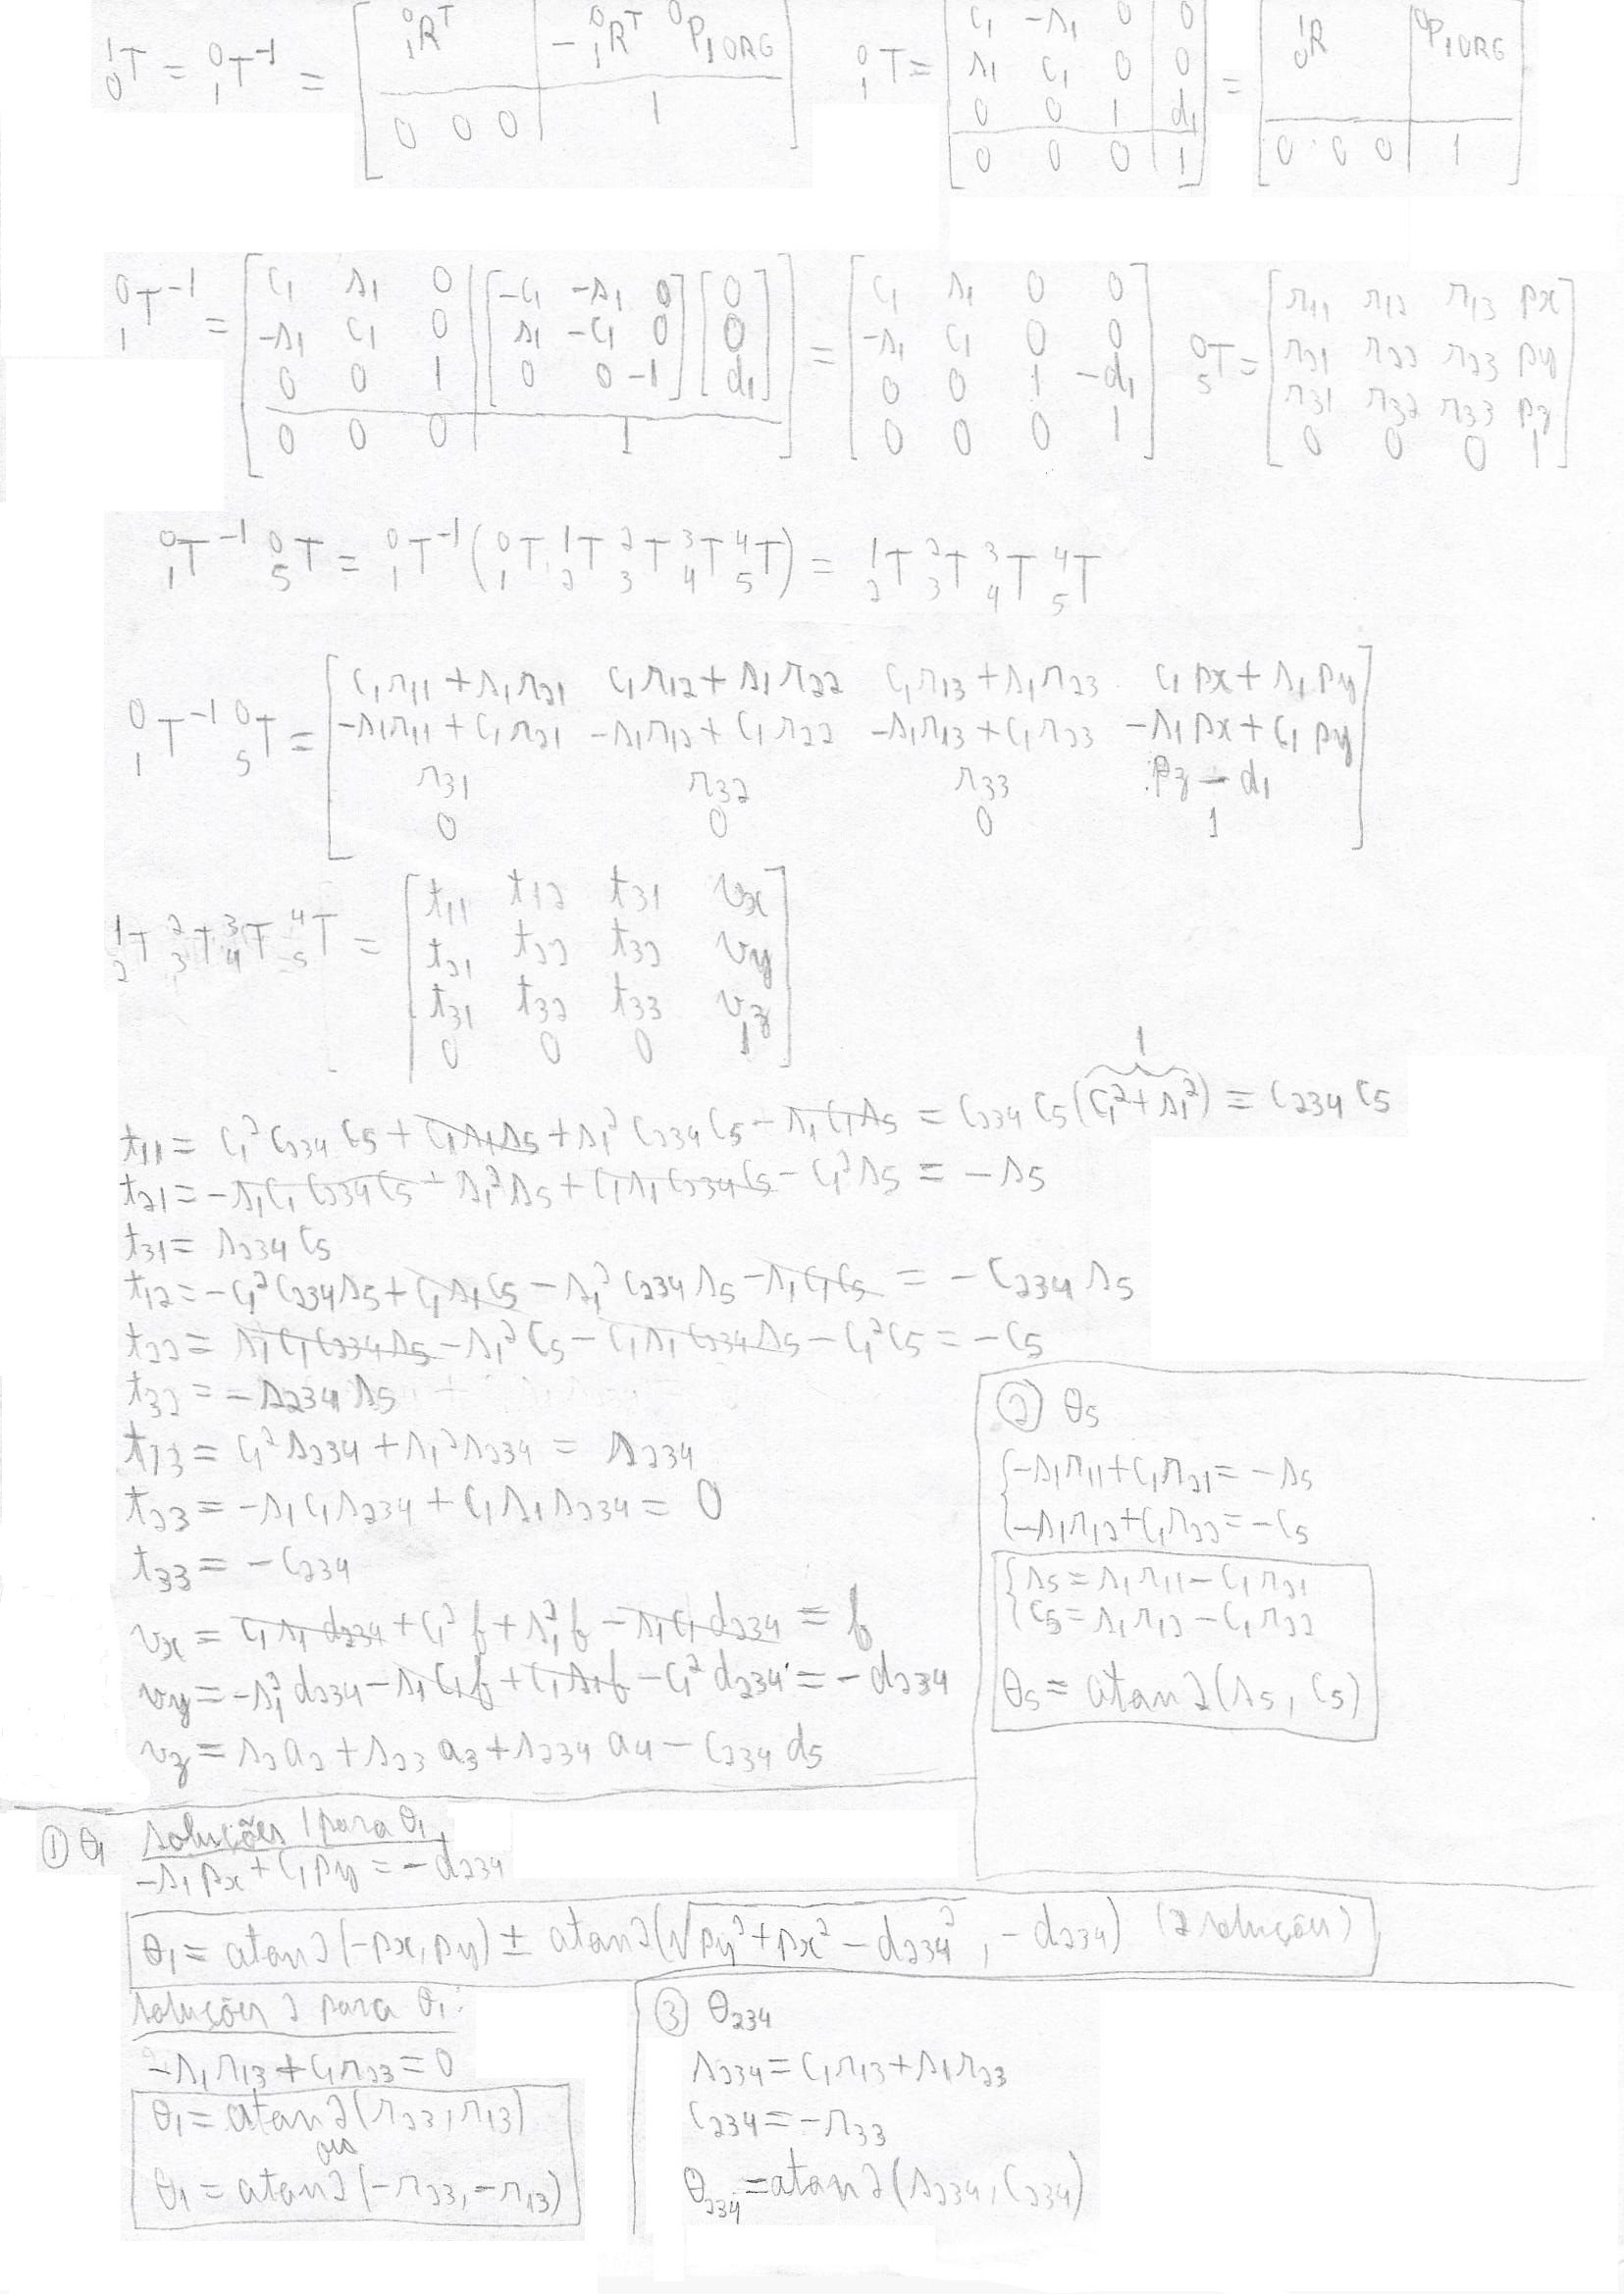 ¹₀T = ⁰₁T⁻¹ = [ ⁰₁Rᵀ | -⁰₁Rᵀ ⁰P₁ORG ; 0 0 0 | 1 ]   ⁰₁T = [ c₁ -s₁ 0 | 0 ; s₁ c₁ 0 | 0 ; 0 0 1 | d₁ ; 0 0 0 | 1 ] = [ ¹₀R | ⁰P₁ORG ; 0 0 0 | 1 ]
⁰₁T⁻¹ = [ c₁ s₁ 0 ; -s₁ c₁ 0 ; 0 0 1 | [ -c₁ -s₁ 0 ; s₁ -c₁ 0 ; 0 0 -1 ] [ 0 ; 0 ; d₁ ] ; 0 0 0 | 1 ] = [ c₁ s₁ 0 0 ; -s₁ c₁ 0 0 ; 0 0 1 -d₁ ; 0 0 0 1 ]   ⁰₅T = [ r₁₁ r₁₂ r₁₃ px ; r₂₁ r₂₂ r₂₃ py ; r₃₁ r₃₂ r₃₃ pz ; 0 0 0 1 ]
⁰₁T⁻¹ ⁰₅T = ⁰₁T⁻¹ (⁰₁T ¹₂T ²₃T ³₄T ⁴₅T) = ¹₂T ²₃T ³₄T ⁴₅T
⁰₁T⁻¹ ⁰₅T = [ c₁r₁₁ + s₁r₂₁ c₁r₁₂ + s₁r₂₂ c₁r₁₃ + s₁r₂₃ c₁px + s₁py ; -s₁r₁₁ + c₁r₂₁ -s₁r₁₂ + c₁r₂₂ -s₁r₁₃ + c₁r₂₃ -s₁px + c₁py ; r₃₁ r₃₂ r₃₃ pz - d₁ ; 0 0 0 1 ]
¹₂T ²₃T ³₄T ⁴₅T = [ t₁₁ t₁₂ t₃₁ vx ; t₂₁ t₂₂ t₃₂ vy ; t₃₁ t₃₂ t₃₃ vz ; 0 0 0 1 ]
1
t₁₁ = c₁²c₂₃₄c₅ + c₁s₁s₅ + s₁²c₂₃₄c₅ - s₁c₁s₅ = c₂₃₄c₅(c₁² + s₁²) = c₂₃₄c₅
t₂₁ = -s₁c₁c₂₃₄c₅ - s₁²s₅ + c₁s₁c₂₃₄c₅ - c₁²s₅ = -s₅
t₃₁ = s₂₃₄c₅
t₁₂ = -c₁²c₂₃₄s₅ + c₁s₁c₅ - s₁²c₂₃₄s₅ - s₁c₁c₅ = -c₂₃₄s₅
t₂₂ = s₁c₁c₂₃₄s₅ - s₁²c₅ - c₁s₁c₂₃₄s₅ - c₁²c₅ = -c₅
t₃₂ = -s₂₃₄s₅
t₁₃ = c₁²s₂₃₄ + s₁²s₂₃₄ = s₂₃₄
t₂₃ = -s₁c₁s₂₃₄ + c₁s₁s₂₃₄ = 0
t₃₃ = -c₂₃₄
vx = c₁s₁d₂₃₄ + c₁²f + s₁²f - s₁c₁d₂₃₄ = f
vy = -s₁²d₂₃₄ - s₁c₁f + c₁s₁f - c₁²d₂₃₄ = -d₂₃₄
vz = s₂a₂ + s₂₃a₃ + s₂₃₄a₄ - c₂₃₄d₅
② θ₅
{ -s₁r₁₁ + c₁r₂₁ = -s₅
{ -s₁r₁₂ + c₁r₂₂ = -c₅
{ s₅ = s₁r₁₁ - c₁r₂₁
{ c₅ = s₁r₁₂ - c₁r₂₂
θ₅ = atan2(s₅, c₅)
① θ₁ soluções 1 para θ₁
-s₁px + c₁py = -d₂₃₄
θ₁ = atan2(-px, py) ± atan2(√(py² + px² - d₂₃₄²), -d₂₃₄) (2 soluções)
soluções 2 para θ₁:
-s₁r₁₃ + c₁r₂₃ = 0
θ₁ = atan2(r₂₃, r₁₃)
ou
θ₁ = atan2(-r₂₃, -r₁₃)
③ θ₂₃₄
s₂₃₄ = c₁r₁₃ + s₁r₂₃
c₂₃₄ = -r₃₃
θ₂₃₄ = atan2(s₂₃₄, c₂₃₄)